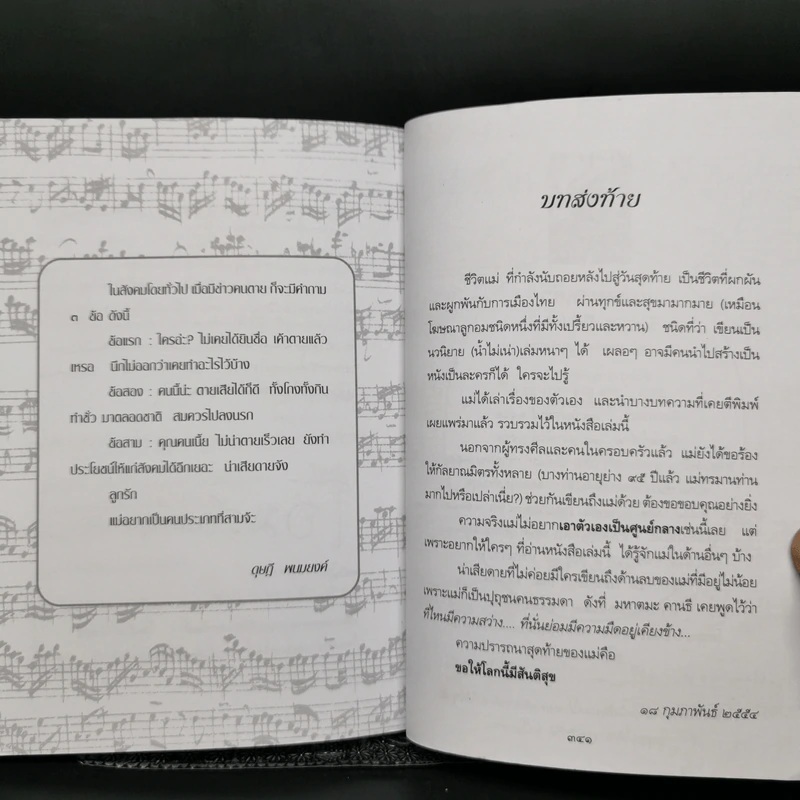 ในสังคมโดยทั่วไป เมื่อมีข่าวคนตาย ก็จะมีคำถาม
๓ ข้อ ดังนี้
ข้อแรก : ใครอ่ะ? ไม่เคยได้ยินชื่อ เค้าตายแล้ว
เหรอ นึกไม่ออกว่าเคยทำอะไรไว้บ้าง
ข้อสอง : คนนี้น่ะ ตายเสียได้ก็ดี ทั้งโกงทั้งกิน
ทำชั่ว มาตลอดชาติ สมควรไปลงนรก
ข้อสาม : คุณคนเนี้ย ไม่น่าตายเร็วเลย ยังทำ
ประโยชน์ให้แก่สังคมได้อีกเยอะ น่าเสียดายจัง
ลูกรัก
แม่อยากเป็นคนประเภทที่สามจ้ะ
ดุษฎี พนมยงค์
บทส่งท้าย
ชีวิตแม่ ที่กำลังนับถอยหลังไปสู่วันสุดท้าย เป็นชีวิตที่ผกผัน
และผูกพันกับการเมืองไทย ผ่านทุกข์และสุขมามากมาย (เหมือน
โฆษณาลูกอมชนิดหนึ่งที่มีทั้งเปรี้ยวและหวาน) ชนิดที่ว่า เขียนเป็น
นวนิยาย (น้ำไม่เน่า)เล่มหนาๆ ได้ เผลอๆ อาจมีคนนำไปสร้างเป็น
หนังเป็นละครก็ได้ ใครจะไปรู้
แม่ได้เล่าเรื่องของตัวเอง และนำบางบทความที่เคยตีพิมพ์
เผยแพร่มาแล้ว รวบรวมไว้ในหนังสือเล่มนี้
นอกจากผู้ทรงศีลและคนในครอบครัวแล้ว แม่ยังได้ขอร้อง
ให้กัลยาณมิตรทั้งหลาย (บางท่านอายุย่าง ๙๕ ปีแล้ว แม่ทรมานท่าน
มากไปหรือเปล่าเนี่ย?) ช่วยกันเขียนถึงแม่ด้วย ต้องขอขอบคุณอย่างยิ่ง
ความจริงแม่ไม่อยากเอาตัวเองเป็นศูนย์กลางเช่นนี้เลย แต่
เพราะอยากให้ใครๆ ที่อ่านหนังสือเล่มนี้ ได้รู้จักแม่ในด้านอื่นๆ บ้าง
น่าเสียดายที่ไม่ค่อยมีใครเขียนถึงด้านลบของแม่ที่มีอยู่ไม่น้อย
เพราะแม่ก็เป็นปุถุชนคนธรรมดา ดังที่ มหาตมะ คานธี เคยพูดไว้ว่า
ที่ไหนมีความสว่าง.... ที่นั่นย่อมมีความมืดอยู่เคียงข้าง...
ความปรารถนาสุดท้ายของแม่คือ
ขอให้โลกนี้มีสันติสุข
๑๘ กุมภาพันธ์ ๒๕๕๔
๓๔๑